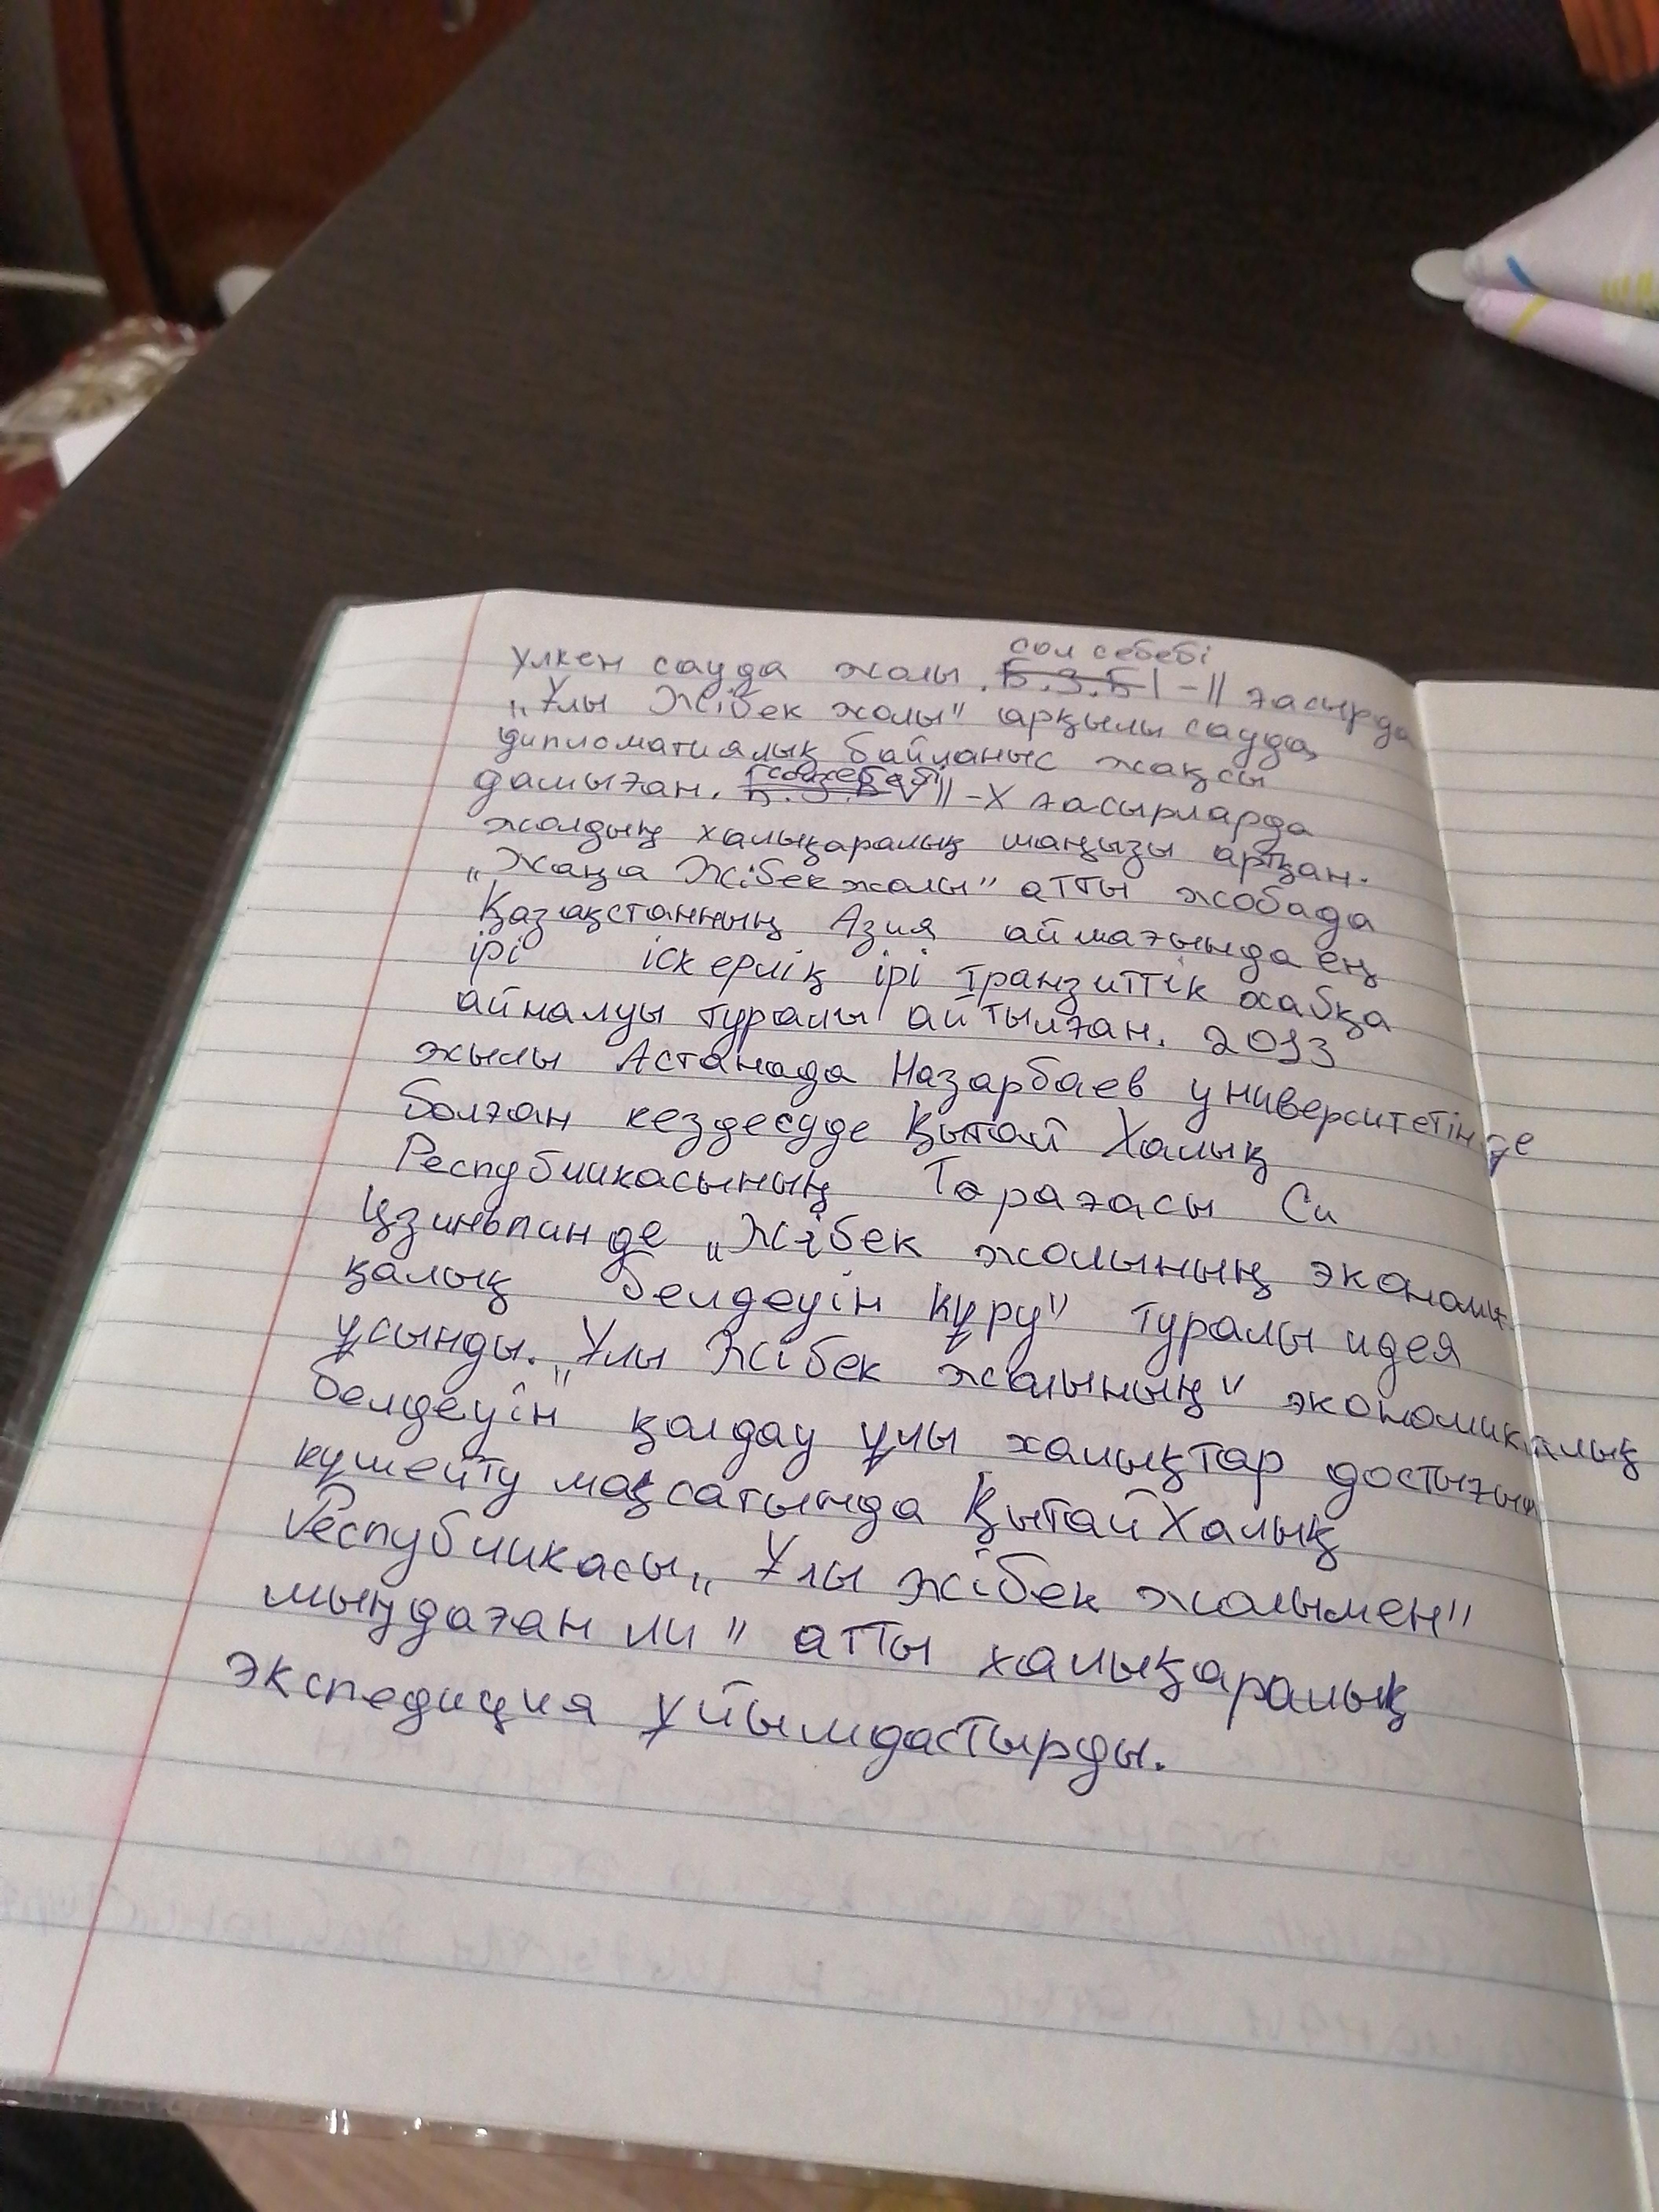 сол себебі
үлкен сауда жолы. Б.З.Б I-II ғасырда
„Ұлы Жібек жолы" арқылы сауда,
дипломатиялық байланыс жақсы
дамыған. VII-X ғасырларда
жолдың халықаралық маңызы артқан.
„Жаңа Жібек жолы" атты жобада
Қазақстанның Азия аймағында ең
ірі іскерлік ірі транзиттік хабқа
айналуы туралы айтылған. 2013
жылы Астанада Назарбаев университетінде
болған кездесуде Қытай Халық
Республикасының Төрағасы Си
Цзиньпинде „Жібек жолының экономи-
қалық белдеуін құру" туралы идея
ұсынды. „Ұлы Жібек жолының" экономикалық
белдеуін" қолдау ұлы халықтар достығын
күшейту мақсатында Қытай Халық
Республикасы „Ұлы жібек жолымен"
мыңдаған ли" атты халықаралық
экспедиция ұйымдастырды.